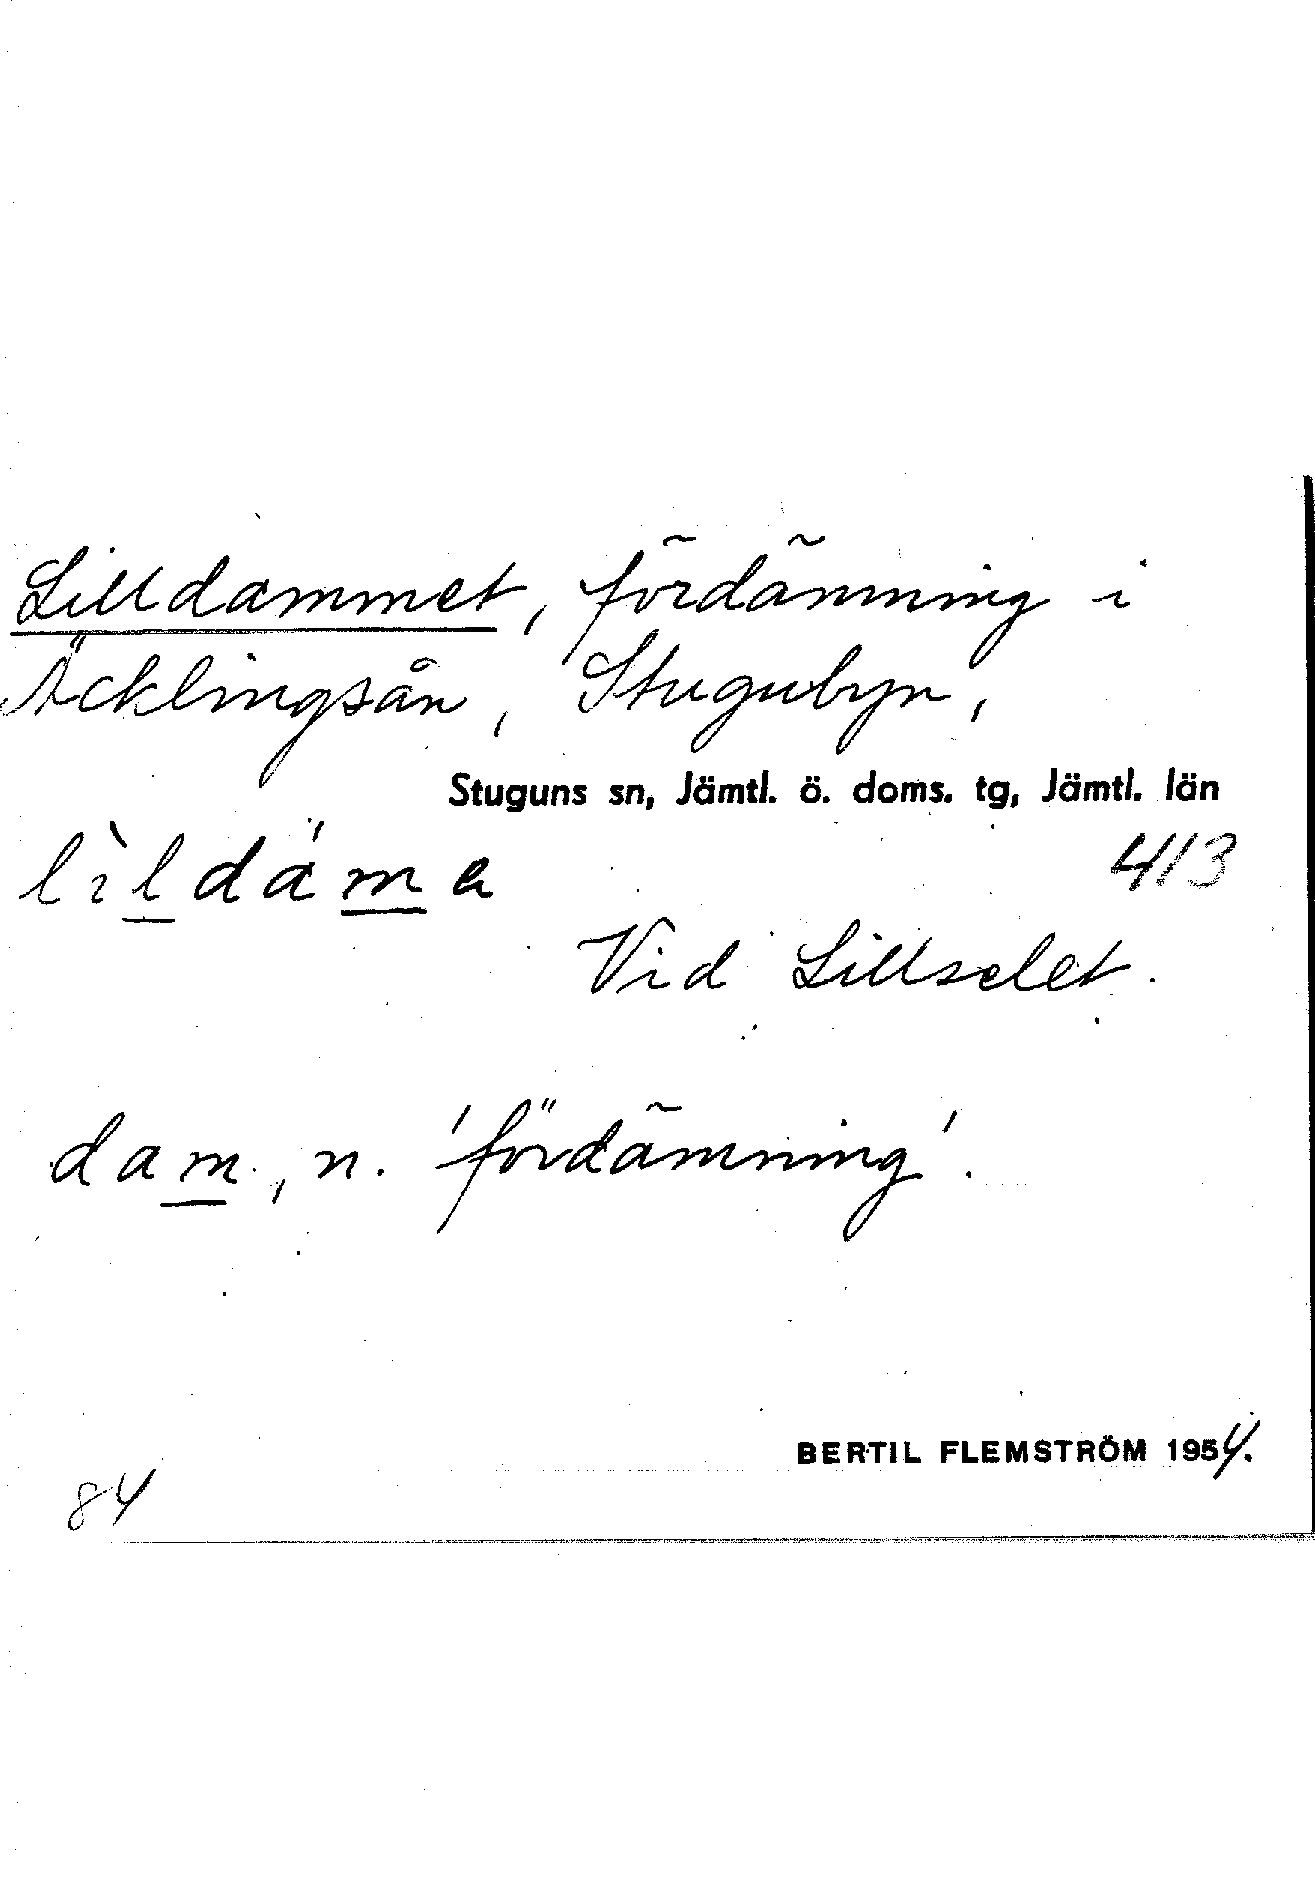 Lilldammet, fördämning i
Äcklingsån, Stugubyn,
Stuguns sn, Jämtl. ö. doms. tg, Jämtl. län
lìldáma
413
Vid Lillselet.
dam, n. 'fördämning'.
BERTIL FLEMSTRÖM 1954.
84